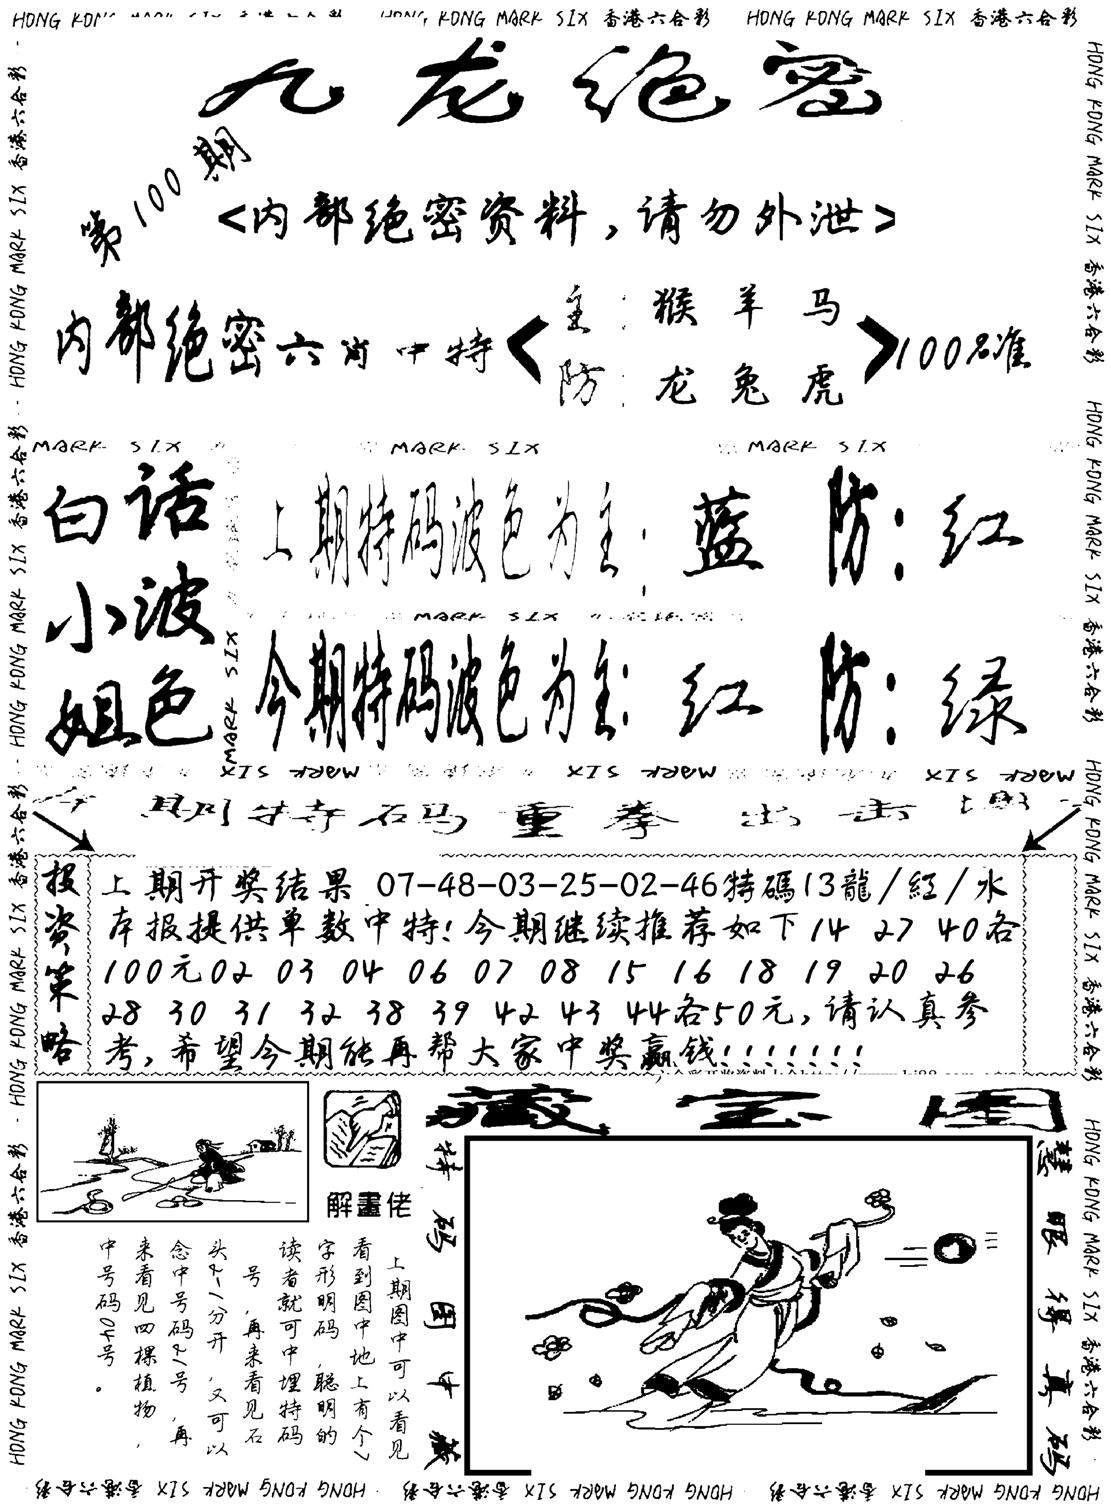 HONG KONG MARK SIX 香港六合彩 HONG KONG MARK SIX 香港六合彩
九龙绝密
第100期
<内部绝密资料,请勿外泄>
内部绝密六肖中特
主:猴 羊 马
防:龙 兔 虎
100%准
MARK SIX MARK SIX MARK SIX
白话
小波
姐色
上期特码波色为主:蓝 防:红
MARK SIX
今期特码波色为主:红 防:绿
MARK SIX MARK SIX MARK SIX
期特码重拳出击
投资策略
上期开奖结果 07-48-03-25-02-46特碼13龍/紅/水
本报提供单数中特!今期继续推荐如下14 27 40各
100元02 03 04 06 07 08 15 16 18 19 20 26
28 30 31 32 38 39 42 43 44各50元,请认真参
考,希望今期能再帮大家中奖赢钱!!!!!!!
解畫佬
藏宝图
特码图中藏
慧眼得真码
上期图中可以看见
看到图中地上有个
字形明码,聪明的
读者就可中埋特码
号,再来看见石
分开,又可以
念中号码21号,再
来看见四棵植物,
中号码04 40号。
HONG KONG MARK SIX 香港六合彩 HONG KONG MARK SIX 香港六合彩 HONG KONG MARK SIX 香港六合彩